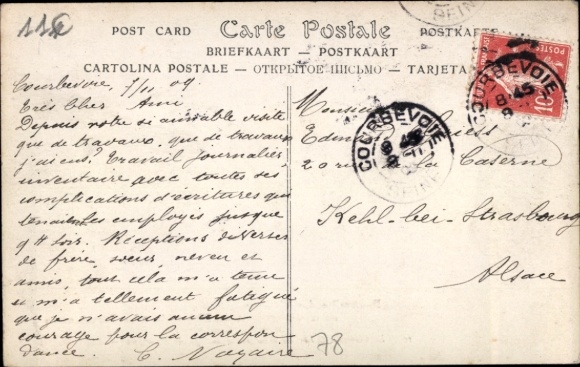 115
POST CARD Carte Postale POSTKARTE
BRIEFKAART — POSTKAART
CARTOLINA POSTALE — ОТКРЫТОЕ ПИСЬМО — TARJETA
COURBEVOIE
8-45
COURBEVOIE
SEINE
10
POSTES
Courbevoie 7/11 09
Très Cher Ami
Depuis notre si aimable visite
que de travaux, que de travaux
j'ai eus. Travail journalier
inventaire avec toutes ses
complications d'écritures qui
tenaient les employés jusque
9 H soir. Réceptions diverses
de frère, sœur, neveu et
amis, tout cela m'a tenu
et m'a tellement fatigué
que je n'avais aucun
courage pour la correspon
dance.
Monsieur
Edm
20 rue de la Caserne
Kehl-bei-Strasbourg
Alsace
78